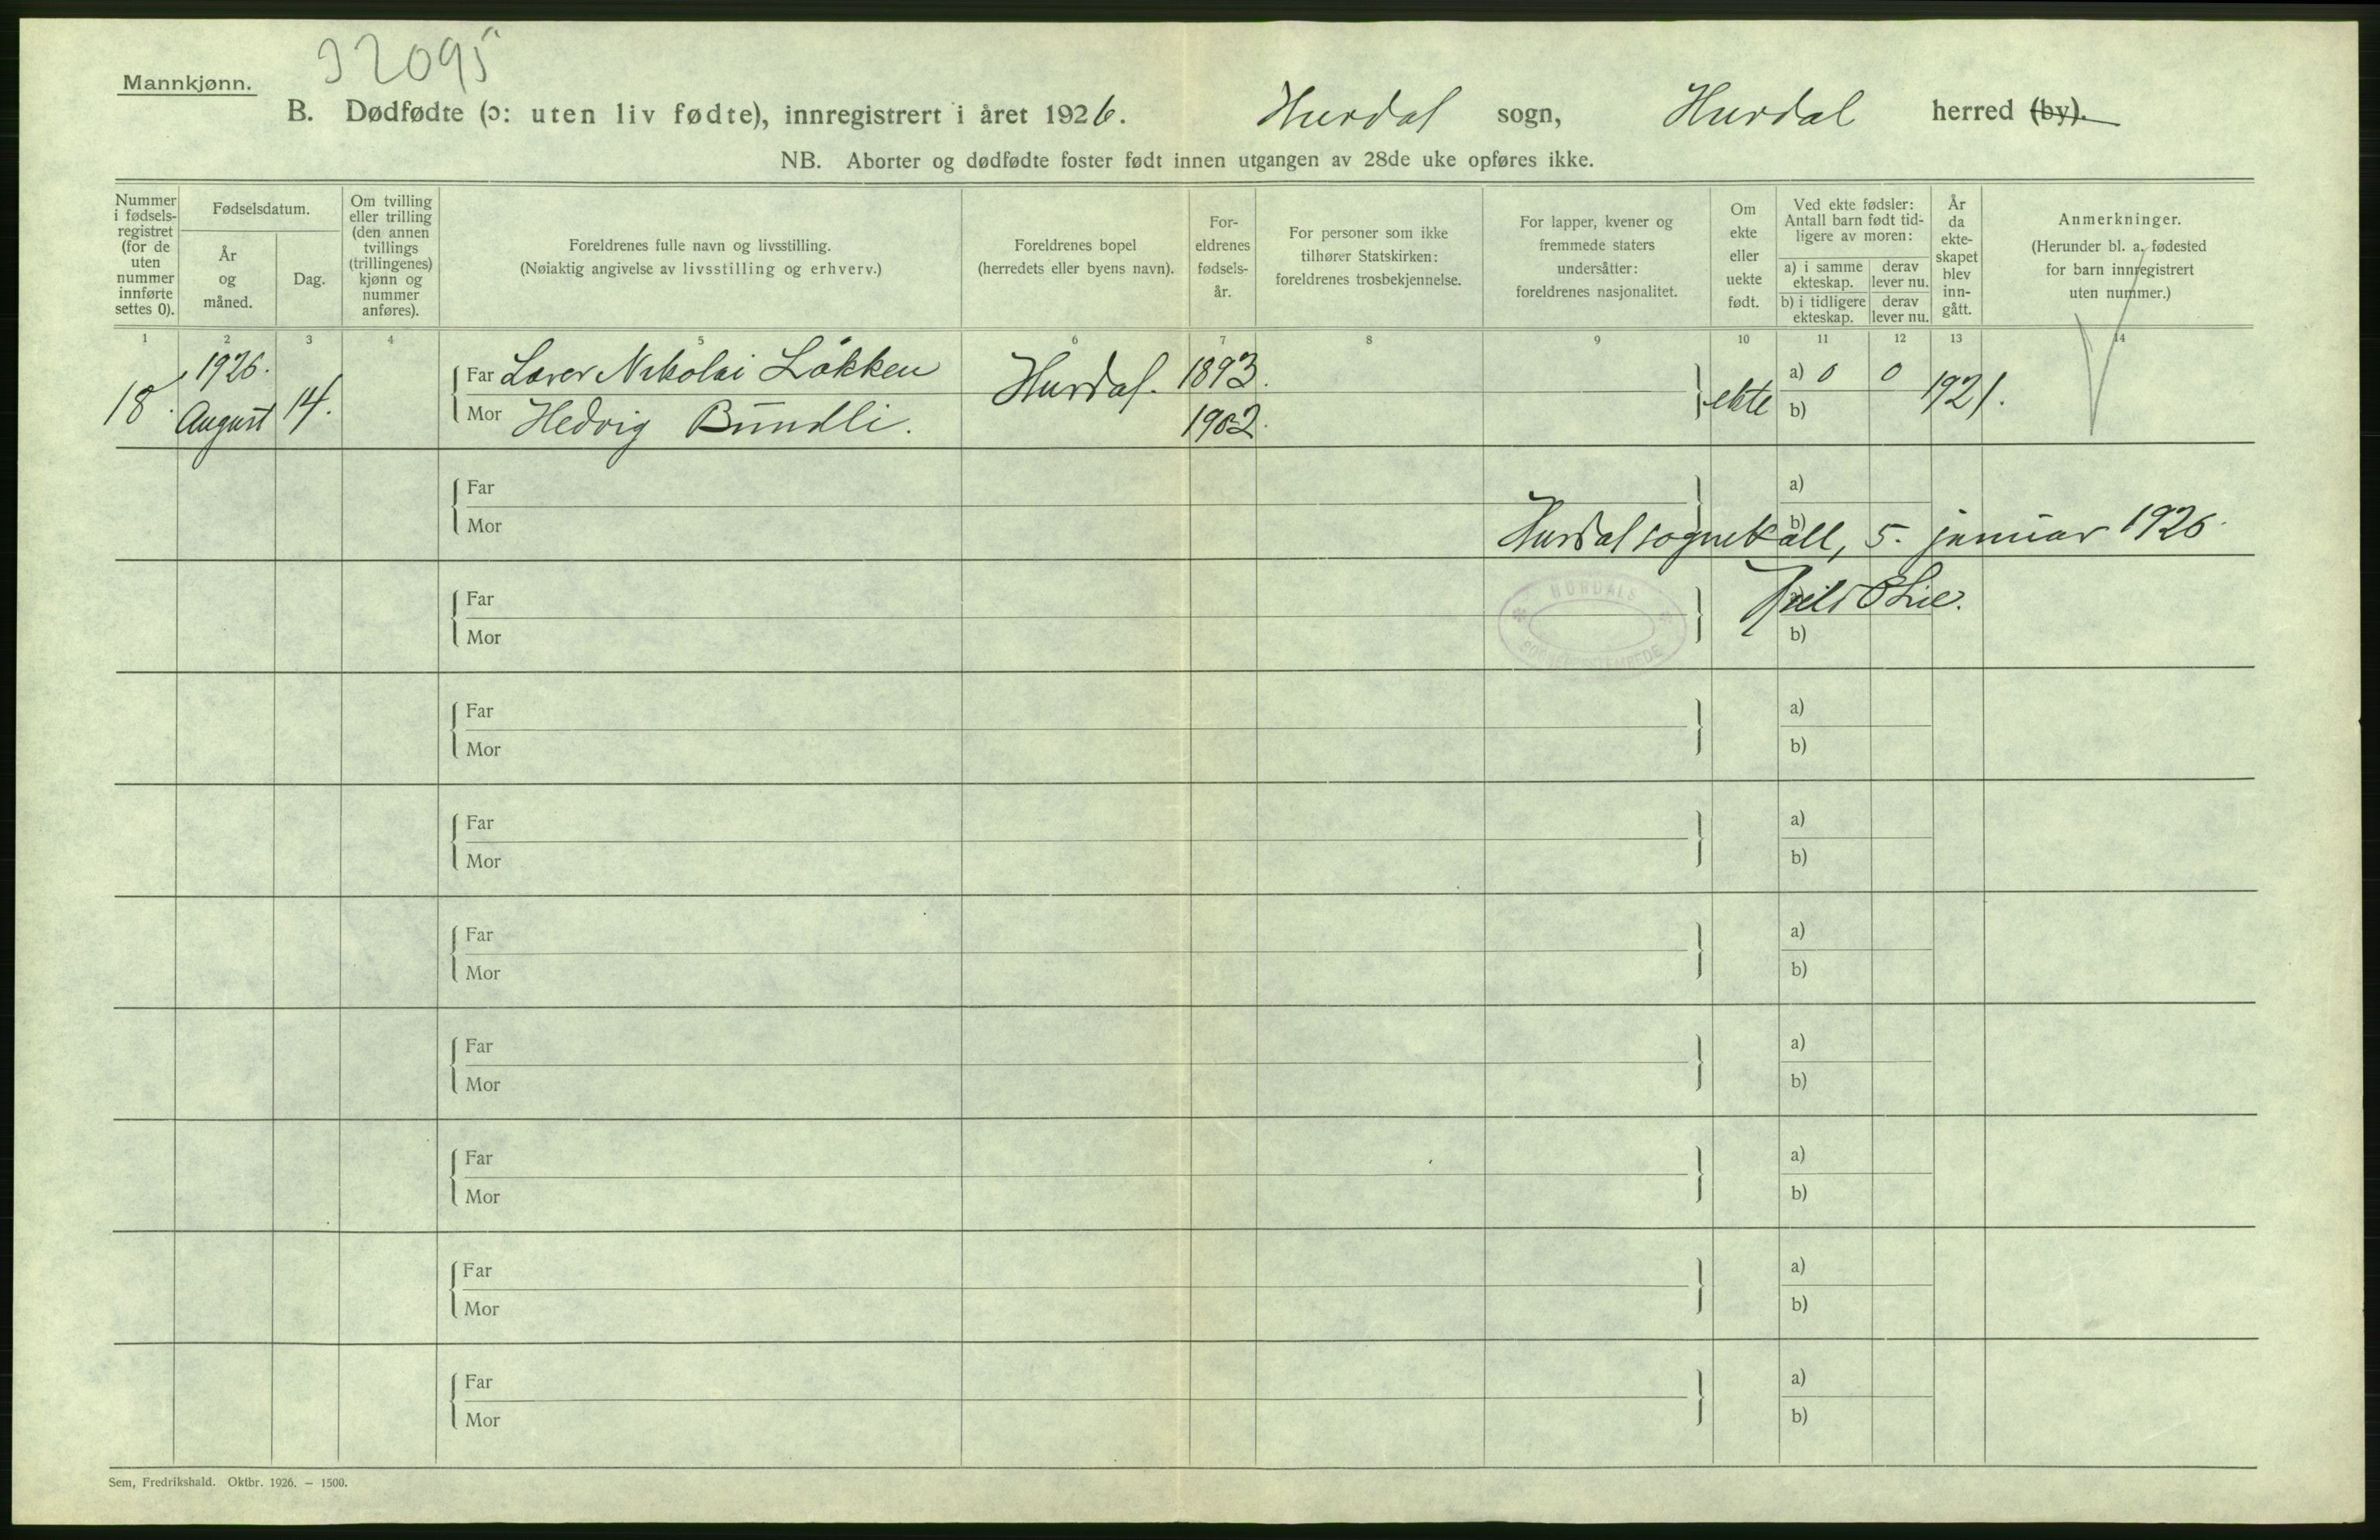 32095
Mannkjønn.
B. Dødfødte (ɔ: uten liv fødte), innregistrert i året 1926. Hurdal sogn, Hurdal herred (by).
NB. Aborter og dødfødte foster født innen utgangen av 28de uke opføres ikke.
Nummer
i fødsels-
registret
(for de
uten
nummer
innførte
settes 0).
Fødselsdatum.
År
og
måned.
Dag.
Om tvilling
eller trilling
(den annen
tvillings
(trillingenes)
kjønn og
nummer
anføres).
Foreldrenes fulle navn og livsstilling.
(Nøiaktig angivelse av livsstilling og erhverv.)
Foreldrenes bopel
(herredets eller byens navn).
For-
eldrenes
fødsels-
år.
For personer som ikke
tilhører Statskirken:
foreldrenes trosbekjennelse.
For lapper, kvener og
fremmede staters
undersåtter:
foreldrenes nasjonalitet.
Om
ekte
eller
uekte
født.
Ved ekte fødsler:
Antall barn født tid-
ligere av moren:
a) i samme
ekteskap.
derav
lever nu.
b) i tidligere
ekteskap.
derav
lever nu.
År
da
ekte-
skapet
blev
inn-
gått.
Anmerkninger.
(Herunder bl. a. fødested
for barn innregistrert
uten nummer.)
1 2 3 4 5 6 7 8 9 10 11 12 13 14
18. 1926. August 14.
Far Lærer Nikolai Løkken Hurdal. 1893. ekte a) 0 0 1921.
Mor Hedvig Bundli. 1902. b)
Far a)
Mor b)
Hurdal sognekall, 5. januar 1926
Far
Mor b)
HURDALS
Far a)
Mor b)
Far a)
Mor b)
Far a)
Mor b)
Far a)
Mor b)
Far a)
Mor b)
Far a)
Mor b)
Far a)
Mor b)
Sem, Fredrikshald. Oktbr. 1926. — 1500.